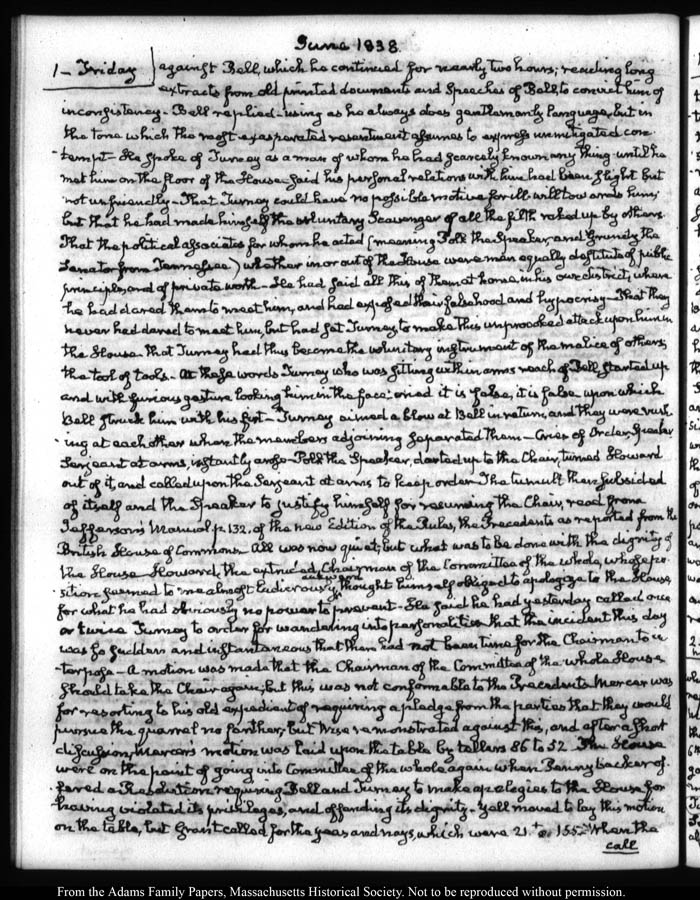 June 1838.
1 – Friday against Bell, which he continued for nearly two hours; reading long
extracts from old printed documents and Speeches of Bell, to convict him of
inconsistency – Bell replied – using as he always does gentlemanly language, but in
the tone which the most exasperated resentment assumes to express unmitigated con-
-tempt – He spoke of Turney as a man of whom he had scarcely known any thing until he
met him on the floor of the House – said his personal relations with him had been slight but
not unfriendly – That Turney could have no possible motive for ill-will towards him;
but that he had made himself the voluntary Scavenger of all the filth raked up by others.
That the political associates for whom he acted (meaning Polk the Speaker, and Grundy the
Senator from Tennessee) whether in or out of the House were men equally destitute of public
principle, and of private worth – He had said all this of them at home, in his own district, where
he had dared them to meet him, and had exposed their falsehood and hypocrisy – That they
never had dared to meet him, but had set Turney, to make this unprovoked attack upon him in
the House. That Turney had thus become the voluntary instrument of the malice of others,
the tool of tools – At these words Turney who was sitting within arms reach of Bell, started up
and with furious gesture looking him in the face cried it is false, it is false – upon which
Bell struck him with his fist – Turney aimed a blow at Bell in return, and they were rush-
-ing at each other when the members adjoining separated them – Cries of Order, Speaker
Sergeant at arms, instantly arose – Polk the Speaker, darted up to the Chair, turned Howard
out of it, and called upon the Sergeant at arms to keep order – The tumult then subsided
of itself and the Speaker to justify himself for resuming the Chair, read from
Jefferson's Manual p. 132. of the new Edition of the Rules, the Precedents as reported from the
British House of Commons – All was now quiet; but what was to be done with the dignity of
the House. Howard, the extruded Chairman of the Committee of the whole, whose po-
-sition seemed to me almost ludicrously awkward, thought himself obliged to apologize to the House,
for what he had obviously no power to prevent – He said he had yesterday called once
or twice Turney to order for wandering into personalities – that the incident this day
was so sudden and instantaneous that there had not been time for the Chairman to in-
-terpose – A motion was made that the Chairman of the Committee of the whole House
should take the Chair again; but this was not conformable to the Precedents. Mercer was
for resorting to his old expedient of requiring a pledge from the parties that they would
pursue the quarrel no farther; but Wise remonstrated against this, and after a short
discussion, Mercer's motion was laid upon the table by tellers 86 to 52. The House
were on the point of going into Committee of the whole again when Pennybacker of-
-fered a Resolution requiring Bell and Turney to make apologies to the House for
having violated its privileges, and offending its dignity – Yell moved to lay this motion
on the table, but Grant called for the yeas and nays, which were 21 to 155 – When the
call
From the Adams Family Papers, Massachusetts Historical Society. Not to be reproduced without permission.